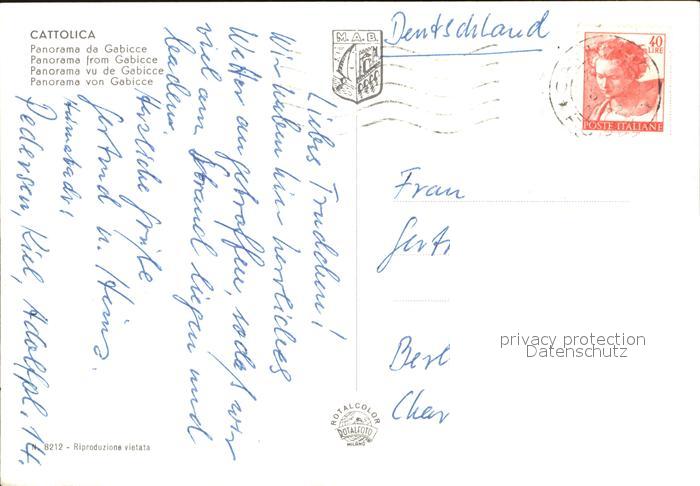 CATTOLICA
Panorama da Gabicce
Panorama from Gabicce
Panorama vu de Gabicce
Panorama von Gabicce
M. A. B.
Deutschland
40
LIRE
POSTE ITALIANE
Liebes Trudchen!
Wir haben hier herrliches
Wetter angetroffen, sodaß wir
viel am Strand liegen und
baden.
Herzliche Grüße
Gertrud u. Heinz.
Pedersen, Kiel, Adolfpl. 14.
Frau
Gert
Berl
Char
privacy protection
Datenschutz
ROTALCOLOR
ROTALFOTO
MILANO
N. 8212 - Riproduzione vietata